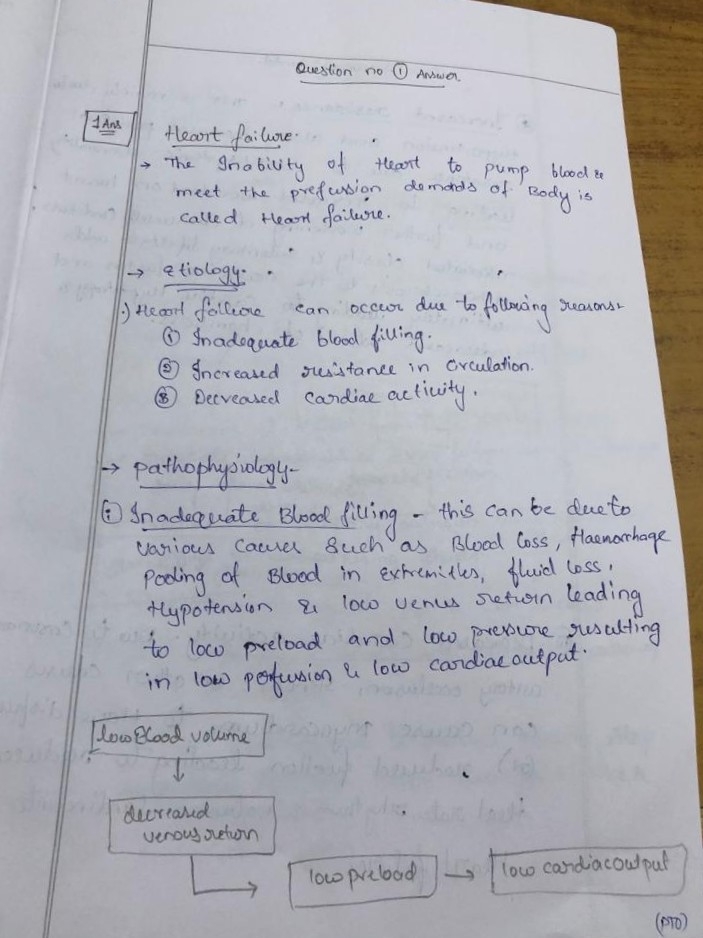 Question no ① Answer
1 Ans
Heart failure.
→ The Inability of Heart to pump blood &
meet the prefusion demands of Body is
called Heart failure.
→ etiology.
.) Heart failure can occur due to following reasons-
① Inadequate blood filling.
② Increased resistance in circulation.
③ Decreased cardiac activity.
→ pathophysiology-
① Inadequate Blood filling - this can be due to
various causes Such as Blood Loss, Haemorrhage
Pooling of Blood in extremities, fluid loss.
Hypotension & low venus return leading
to low preload and low pressure resulting
in low perfusion & low cardiac output.
low Blood volume
↓
decreased
venous return
→ low preload → low cardiac output
(PTO)